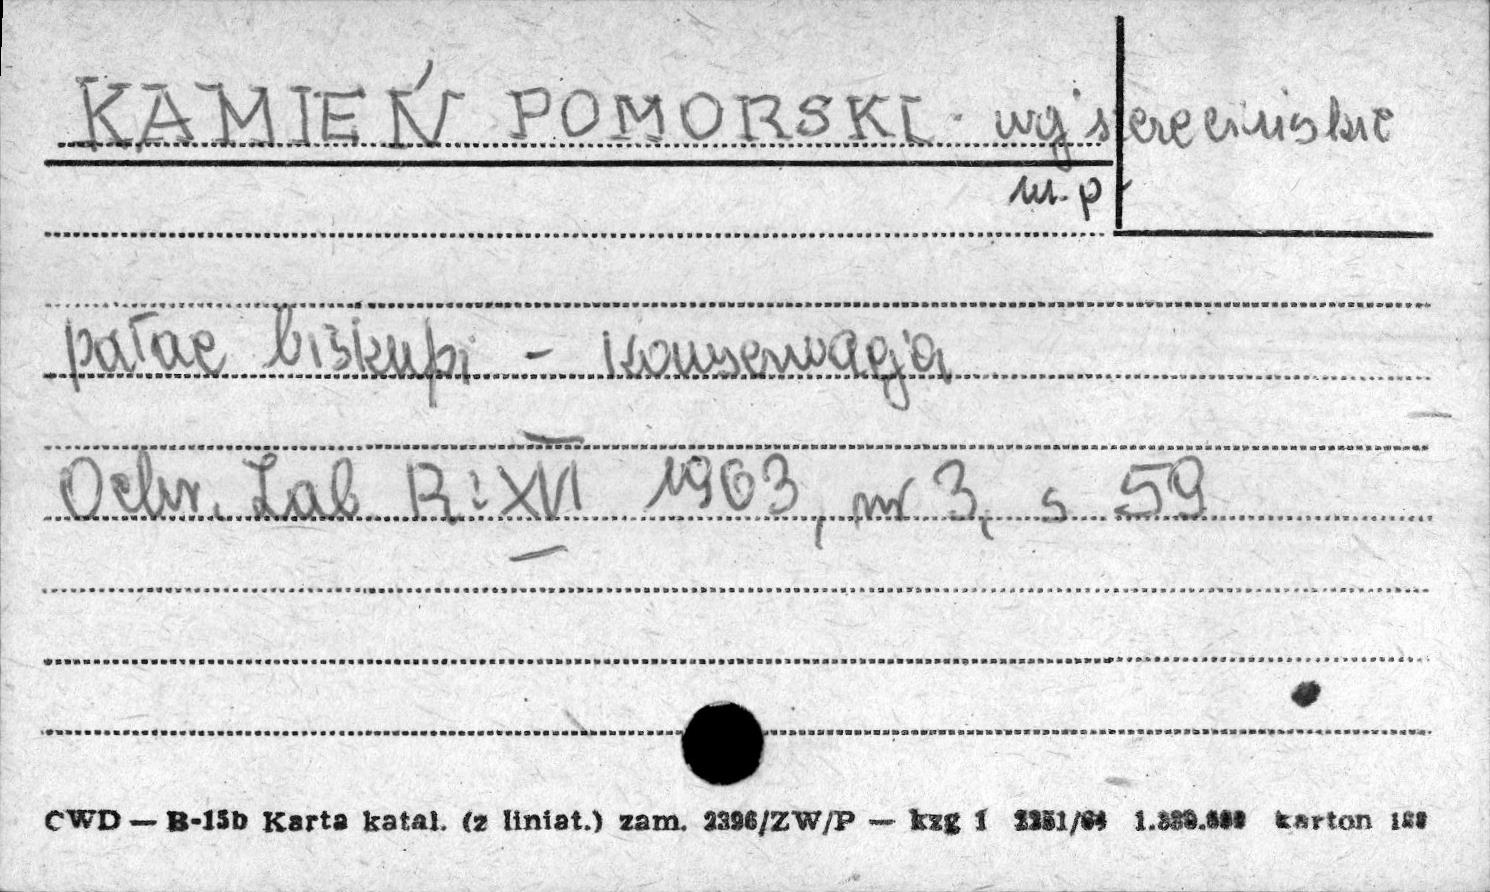 KAMIEŃ POMORSKI - woj. szczecińskie
m. p.
pałac biskupi - konserwacja
Ochr. Zab R: XVI 1963, nr 3, s 59
CWD — B-15b Karta katal. (z liniat.) zam. 2396/ZW/P — kzg 1 2251/64 karton